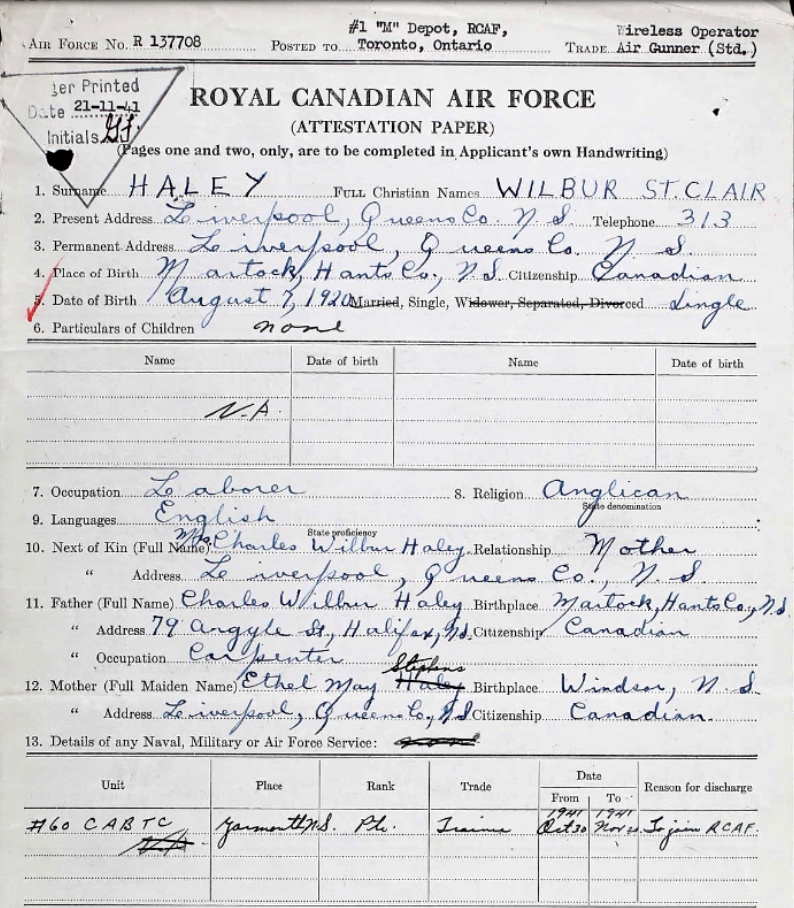 #1 "M" Depot, RCAF, Wireless Operator
AIR FORCE No. R 137708 POSTED TO Toronto, Ontario TRADE Air Gunner (Std.)
ger Printed
Date 21-11-41
Initials
ROYAL CANADIAN AIR FORCE
(ATTESTATION PAPER)
(Pages one and two, only, are to be completed in Applicant's own Handwriting)
1. Surname HALEY FULL Christian Names WILBUR ST. CLAIR
2. Present Address Liverpool, Queens Co. N.S Telephone 313
3. Permanent Address Liverpool, Queens Co. N.S.
4. Place of Birth Martock, Hants Co., N.S. Citizenship Canadian
5. Date of Birth August 7, 1920 Married, Single, Widower, Separated, Divorced Single
6. Particulars of Children none
Name Date of birth Name Date of birth
N.A.
7. Occupation Laborer 8. Religion Anglican
State denomination
9. Languages English
State proficiency
10. Next of Kin (Full Name) Mrs. Charles Wilbur Haley Relationship Mother
" Address Liverpool, Queens Co., N.S.
11. Father (Full Name) Charles Wilbur Haley Birthplace Martock, Hants Co., N.S.
" Address 79 Argyle St., Halifax, N.S. Citizenship Canadian
" Occupation Carpenter
Stephens
12. Mother (Full Maiden Name) Ethel May Haley Birthplace Windsor, N.S.
" Address Liverpool, Queens Co., N.S Citizenship Canadian.
13. Details of any Naval, Military or Air Force Service: none
Unit Place Rank Trade Date Reason for discharge
From To
1941 1941
#60 CABTC Yarmouth N.S. Pte. Trainee Oct 30 Nov To join RCAF.
N.A.